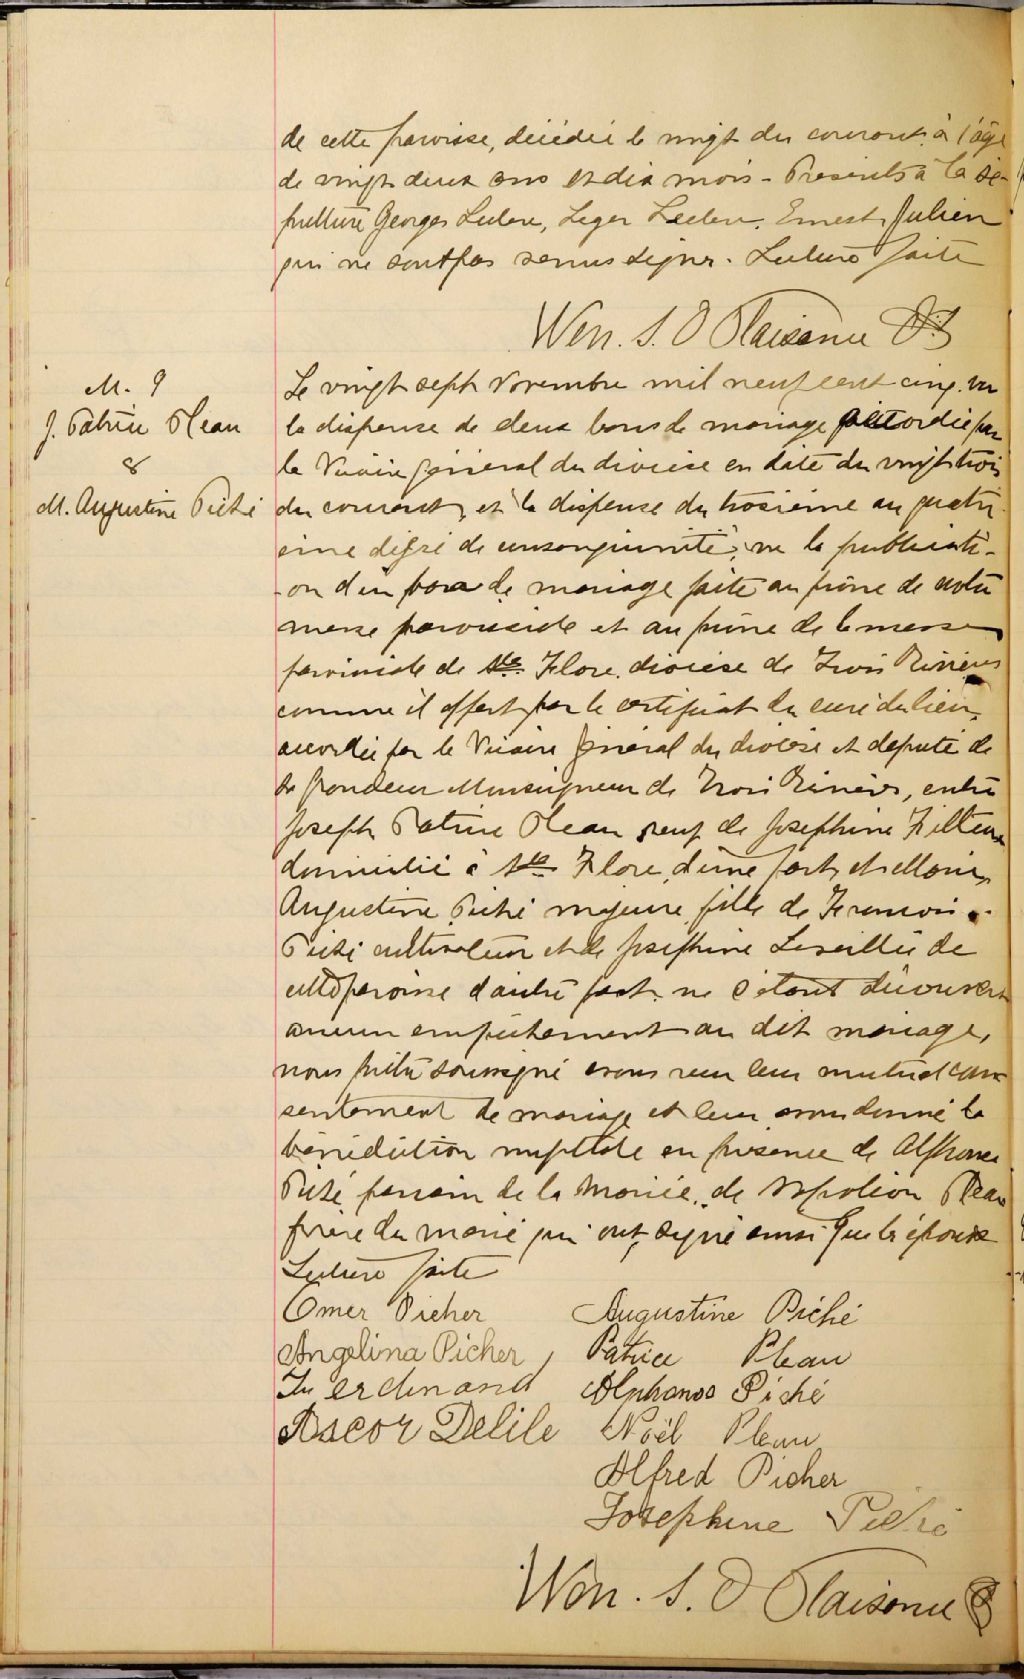 de cette paroisse, décédée le vingt du courant à l'âge
de vingt deux ans et dix mois - Présents à la sé-
pulture Georges Leclerc, Leger Leclerc, Ernest Julien
qui ne sont pas senus signer. Lecture faite
Wen. S. O Plaisance
M. 9
J. Patrice Pleau
&
M. Augustine Piché
Le vingt sept Novembre mil neuf cent cinq, vu
la dispense de deux bans de mariage accordée par
le Vicaire général du diocèse en date du vingt trois
du courant, et la dispense du troisième au quatri
ème degré de consanguinité, vu la publicati-
-on d'un ban de mariage faite au prône de notre
messe paroissiale et au prône de la messe
paroissiale de Ste Flore, diocèse de Trois Rivières
comme il appert par le certificat du curé du lieu,
accordée par le Vicaire général du diocèse et député de
Sa Grandeur Monseigneur de Trois Rivières, entre
Joseph Patrice Pleau veuf de Josephine
domicilié à Ste Flore, d'une part, et Marie
Augustine Piché majeure, fille de Francois
Piché cultivateur et de Josephine Leveillée de
cette paroisse d'autre part, ne s'étant découvert
aucun empêchement au dit mariage,
nous prêtre soussigné avons reçu leur mutuel con
sentement de mariage et leur avons donné la
bénédiction nuptiale en présence de Alphonse
Piché parrain de la mariée, de Napoléon Pleau
frère du marié qui ont signé ainsi que les époux
Lecture faite
Omer Picher Augustine Piché
Angelina Picher Patrice Pleau
Ferdinand Alphonse Piché
Ascor Delile Noël Pleau
Alfred Picher
Josephine Piché
Wen. S. O Plaisance